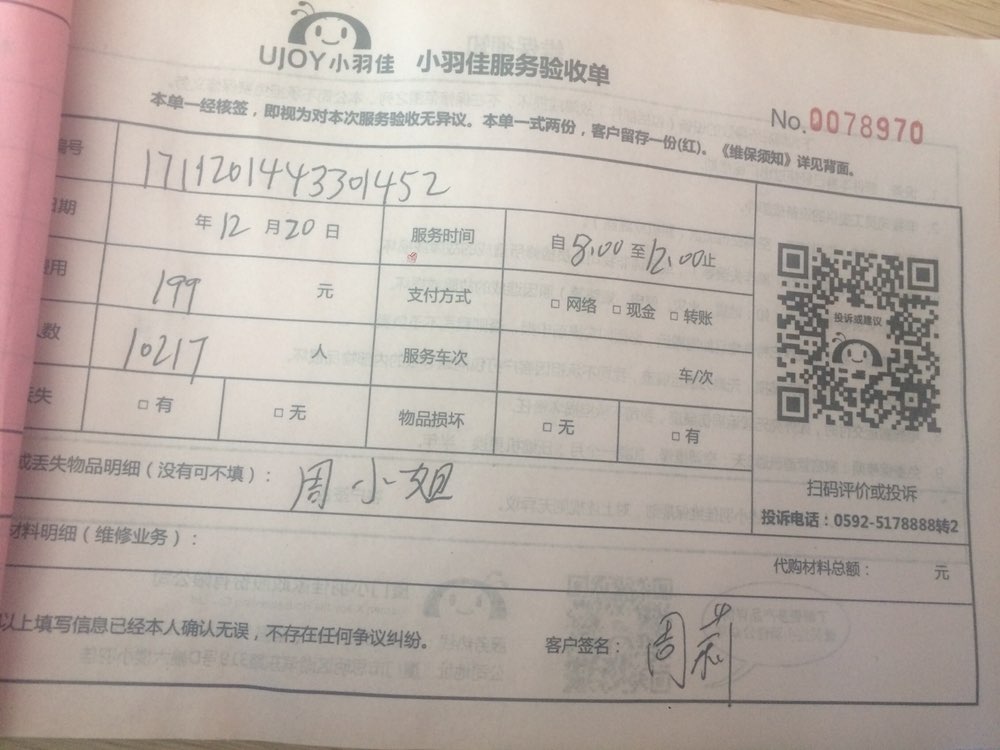 UJOY小羽佳 小羽佳服务验收单
No.0078970
本单一经核签，即视为对本次服务验收无异议。本单一式两份，客户留存一份(红)。《维保须知》详见背面。
编号 1711201443301452
日期 年 12 月 20 日 服务时间 自 8:00 至 12:00 止
费用 199 元 支付方式 □ 网络 □ 现金 □ 转账
人数 10217 人 服务车次 车/次
丢失 □ 有 □ 无 物品损坏 □ 无 □ 有
投诉或建议
扫码评价或投诉
投诉电话：0592-5178888转2
或丢失物品明细（没有可不填）： 周小姐
材料明细（维修业务）：
代购材料总额： 元
以上填写信息已经本人确认无误，不存在任何争议纠纷。
客户签名： 周